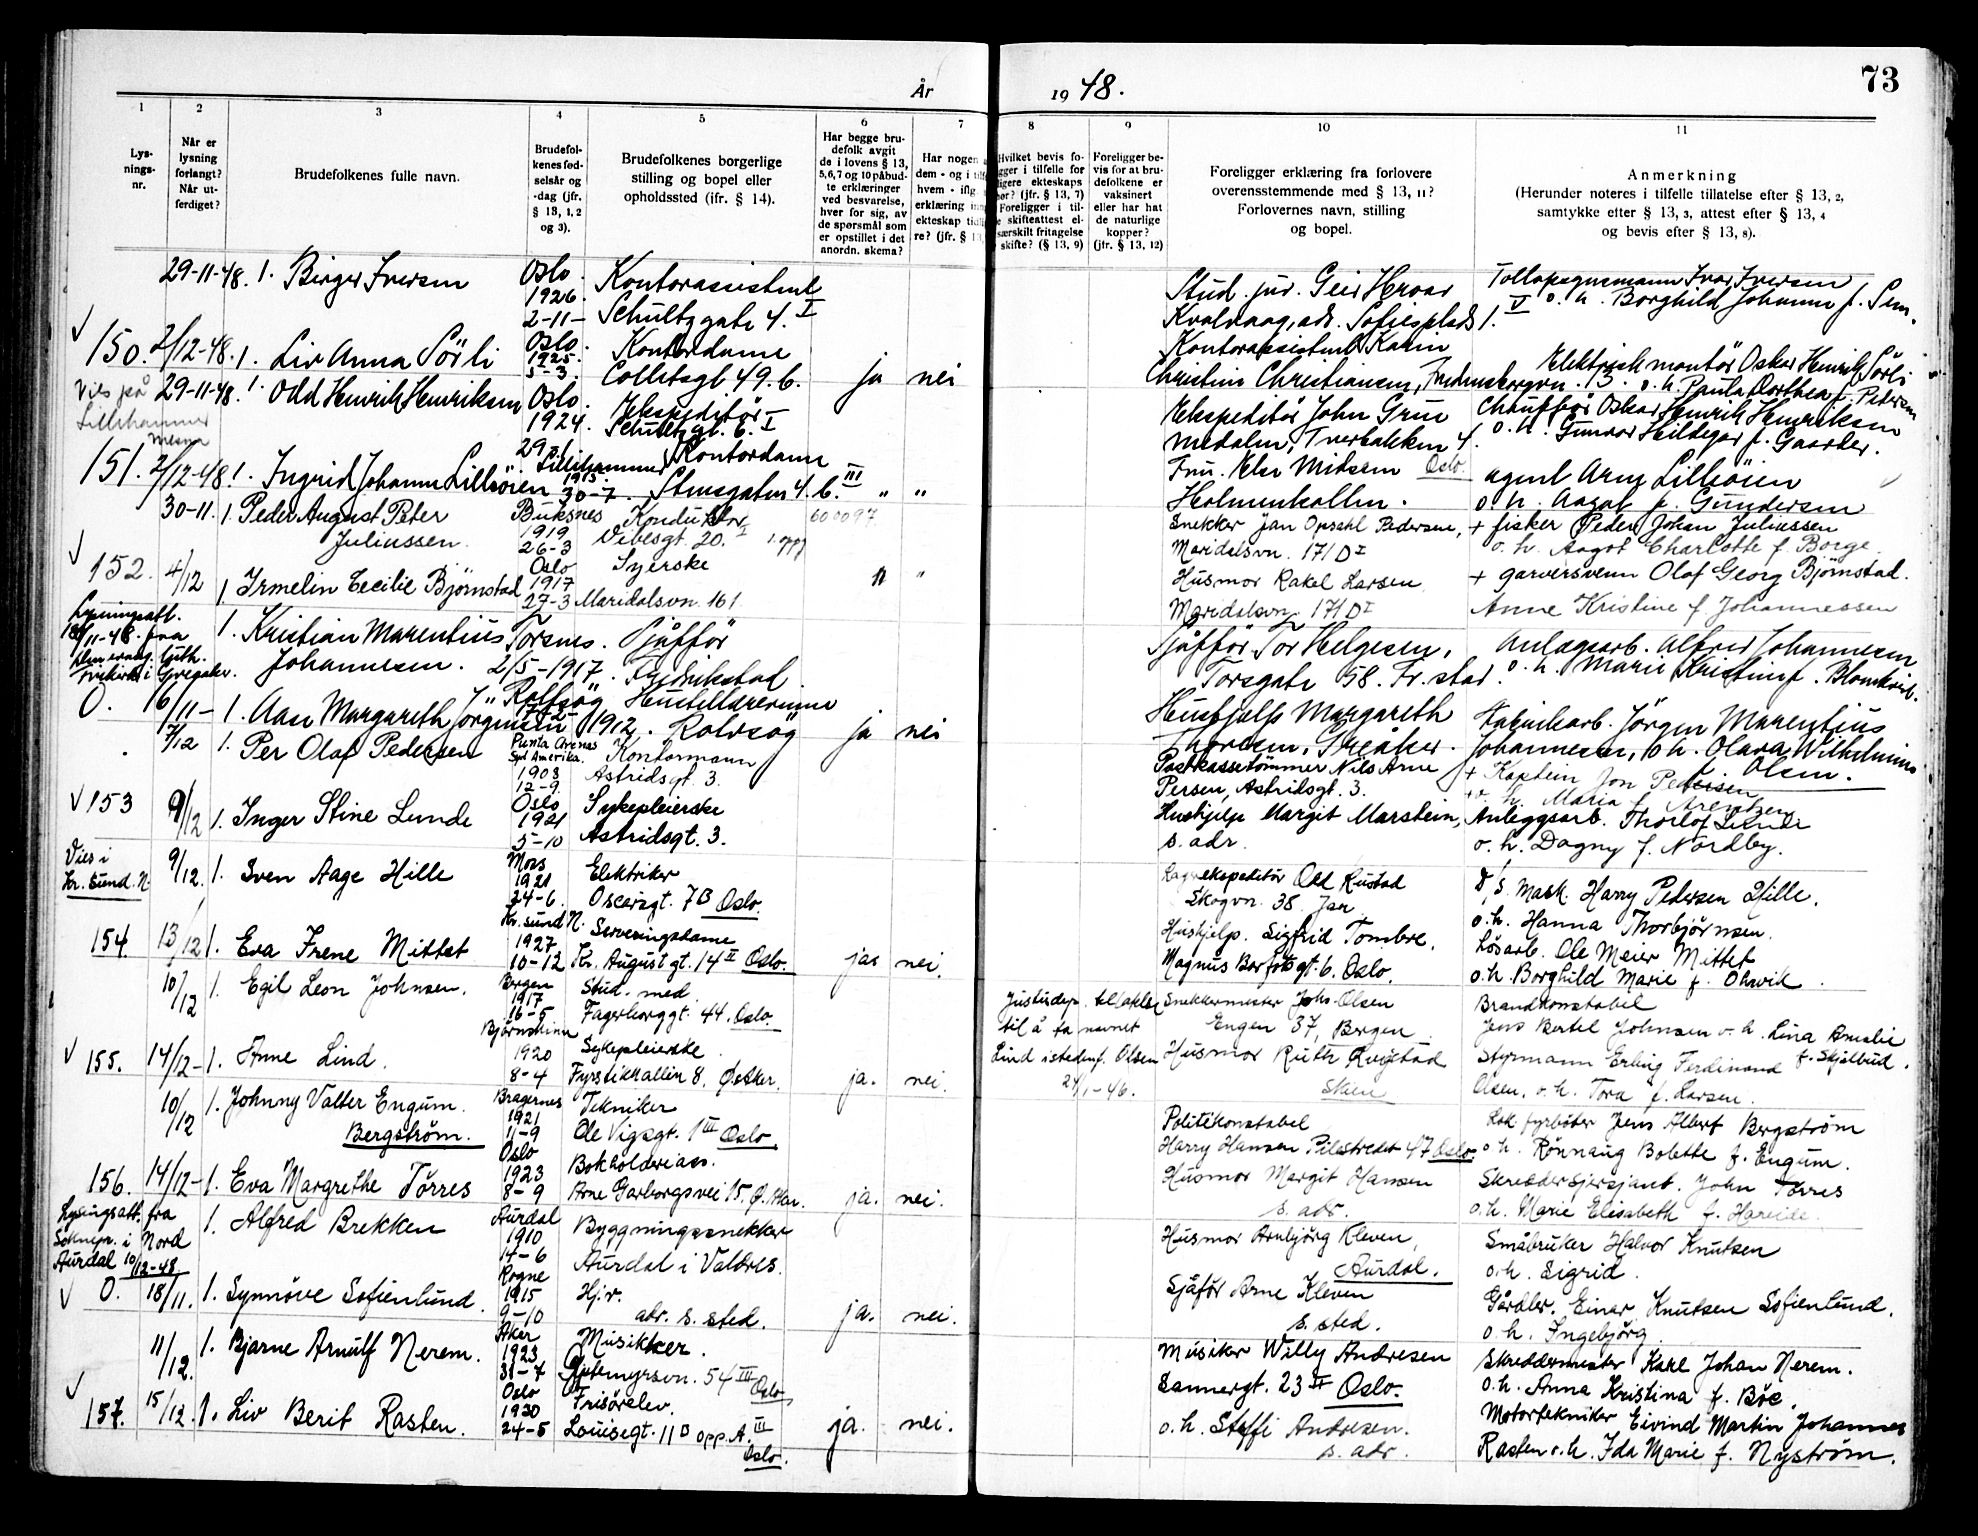 År 1948.
73
1 2 3 4 5 6 7 8 9 10 11
Lysningsnr.
Når er lysning forlangt? Når utferdiget?
Brudefolkenes fulle navn.
Brudefolkenes fødselsår og -dag (jfr. § 13, 1, 2 og 3).
Brudefolkenes borgerlige stilling og bopel eller opholdssted (ifr. § 14).
Har begge brudefolk avgit de i lovens § 13, 5,6,7 og 10 påbudte erklæringer ved besvarelse, hver for sig, av de spørsmål som er opstillet i det anordn. skema?
Har nogen
dem - og i
hvem - iflg
erklæring
ekteskap
re? (jfr. § 13,
Hvilket bevis
i tilfelle for
ekteskaps
(jfr. § 13, 7)
Foreligger i til-
skifteattest el-
særskilt fritagelse
skifte? (§ 13, 9)
Foreligger bevis for at brudefolkene er vaksinert eller har hat de naturlige kopper? (jfr. § 13, 12)
Foreligger erklæring fra forlovere overensstemmende med § 13, 11? Forlovernes navn, stilling og bopel.
Anmerkning
(Herunder noteres i tilfelle tillatelse efter § 13, 2, samtykke efter § 13, 3, attest efter § 13, 4 og bevis efter § 13, 8).
29-11-48. 1. Birger Iversen Oslo. 1926. 2-11- Kontorassistent Schultzgate 4. I Stud. jur. Geir Hroar Kvalvaag, adr. Sofiesplads 1. V Ivar Iversen o. h. Borghild Johanne f.
150. 2/12-48. 1. Liv Anna Sörli Oslo. 1925. 5-3. Kontordame Colletsgt 49. b. ja nei Kontorassistent Karin Christine Christiansen, Elektrisk montör Oskar Henrik Sörli o. h. Paula Dorthea f. Petersen
Vies på Lillehammer
29-11-48. 1. Odd Henrik Henriksen Oslo. 1924. 29-1 Ekspeditör Schultzgt. 6. I Ekspeditör John Grue Medalen, Tverbakken 4. Chauffør Oskar Henrik Henriksen o. h. Gunvor Hildegar f. Gaarder.
151. 2/12-48 1. Ingrid Johanne Lillröien Lillehammer 1915. 30-7. Kontordame Stensgaten 4. b. III " " Fru. Else Oslo. Holmenkollen. Agent Arne Lillröien o. h. Aagot f. Gundersen
30-11. 1. Peder August Peter Juliussen. Buksnes 1919 26-3 Konduktør Vibesgt. 20. I 600097 Snekker Jan Opsahl Pedersen, Maridalsvn. 171 D I + fisker Peder Johan Juliussen o. h. Aagot Charlotte f. Borge.
152. 4/12 1. Irmelin Cecilie Bjørnstad Oslo 1917 27-3 Syerske Maridalsvn. 161. " " Husmor Rakel Larsen Maridalsvn. 171 D I + garversvenn Olaf Georg Bjørnstad. Anne Kristine f. Johannessen
Lysningsatt.
1. Kristian Marentius Johannesen. Torsnes. 2/5-1917. Sjåfför Fredrikstad Sjåfför Tor Helgesen, Torsgate 58. Fr.stad. Anlegsarb. Alfred Johannesen o. h. Marie Kristine f.
0. 16/11- 1. Aase Margareth Jörgensen Rolfsög 1912. Rolvsög ja nei Hushjelp Margareth Thoresen, Greåker. Fabrikarb. Jörgen Marentius Johannesen, o. h. Olava Wilhelmine f. Olsen.
7/12 1. Per Olaf Pedersen Punta Arenas Syd Amerika. 1903 12-9 Kontormann Astridsgt. 3 Postkassetømmer Nils Arne Persen, Astridsgt. 3. + Kaptein Jon Petersen + o. h. Maria f. Arentzen
153 9/12 1. Inger Stine Lunde Oslo 1921 5-10 Sykepleierske Astridsgt. 3. Hushjelp Margit Marstein, s. adr. Anleggsarb. Thorlof Lunde o. h. Dagny f. Nordby.
Vies i Kr. sund. N.
9/12. 1. Sven Aage Hille Moss 1921 24-6. Elektriker Oscarsgt. 7 B Oslo. Lagerekspeditör Odd Rustad Skogvn. 38 Jar D/S. Mask. Harry Pedersen Hille. o. h. Hanna Thorbjørnsen.
154. 13/12 1. Eva Irene Mittet Kr. sund N. 1927 10-12 Serveringsdame Kr. August gt. 14 II Oslo. ja nei. Hushjelp. Sigfrid Tombre. Magnus Barfotsgt. 6. Oslo. Løsarb. Ole Meier Mittet o. h. Borghild Marie f. Ohrvik.
10/12 1. Egil Leon Johnsen. Bergen 1917 16-5 Stud. med. Fagerborggt. 44. Oslo. Justisdep. tillatelse til å ta navnet Lind istedenf. Olsen 24/1-46. Snekkermester Johs. Olsen Engen 37, Bergen. Brandkonstabel Jens Bertel Johnsen o. h. Lina Amalie f. Skjelbud.
155. 14/12- 1. Anne Lind. Bjørnskinn 1920 8-4 Sykepleierske Fyrstikkalleen 8, Ø. Aker. ja. nei. Husmor Ruth Skien Styrmann Erling Ferdinand Olsen. o. h. Tora f. Larsen.
10/12 1. Johnny Valter Engum. Bergström. Bragernes 1921 11-9 Tekniker Ole Vigsgt. 1 III Oslo. Politikonstabel Harry Hansen Pilestredet 47 Oslo. Lok. fyrbøter Jens Albert Bergström o. h. Rönnaug Bolette f. Engum.
156. 14/12- 1. Eva Margrethe Törres Oslo 1923 8-9 Bokholderiass. Arne Garborgsvei 15. Ø. Aker. ja. nei. Husmor Margit Hansen s. adr. John Törres o. h. Marie Elisabeth f. Hareide.
Lysingsatt. fra Soknepr. i Nord Aurdal 10/12-48.
1. Alfred Brekken Aurdal 1910 14-6 Byggningssnekker Aurdal i Valdres. Husmor Arnbjörg Kleven, Aurdal. Småbruker Halvor Knutsen o. h. Sigrid.
0. 18/11. 1. Synnöve Sofienlund. Rogne 1915 9-10 Hjv. adr. s. sted. ja. nei. Sjåför Arne Kleven s. sted. Gårdbr. Einar Knutsen Sofienlund. o. h. Ingebjörg.
11/12. 1. Bjarne Arnulf Nerem. Aker 1923 31-7 Musikker. 54 III Oslo Musiker Willy Andresen Sannergt. 23 II Oslo. Skreddermester Karl Johan Nerem. o. h. Anna Kristina f. Böe.
157. 15/12. 1. Liv Berit Rasten. Oslo 1930 24-5 Frisörelev. Louisegt. 11 B opp. A. III Oslo. ja. nei. o. h. Steffi Andresen. s. adr. Motortekniker Eivind Martin Johannes Rasten o. h. Ida Marie f. Nyström.